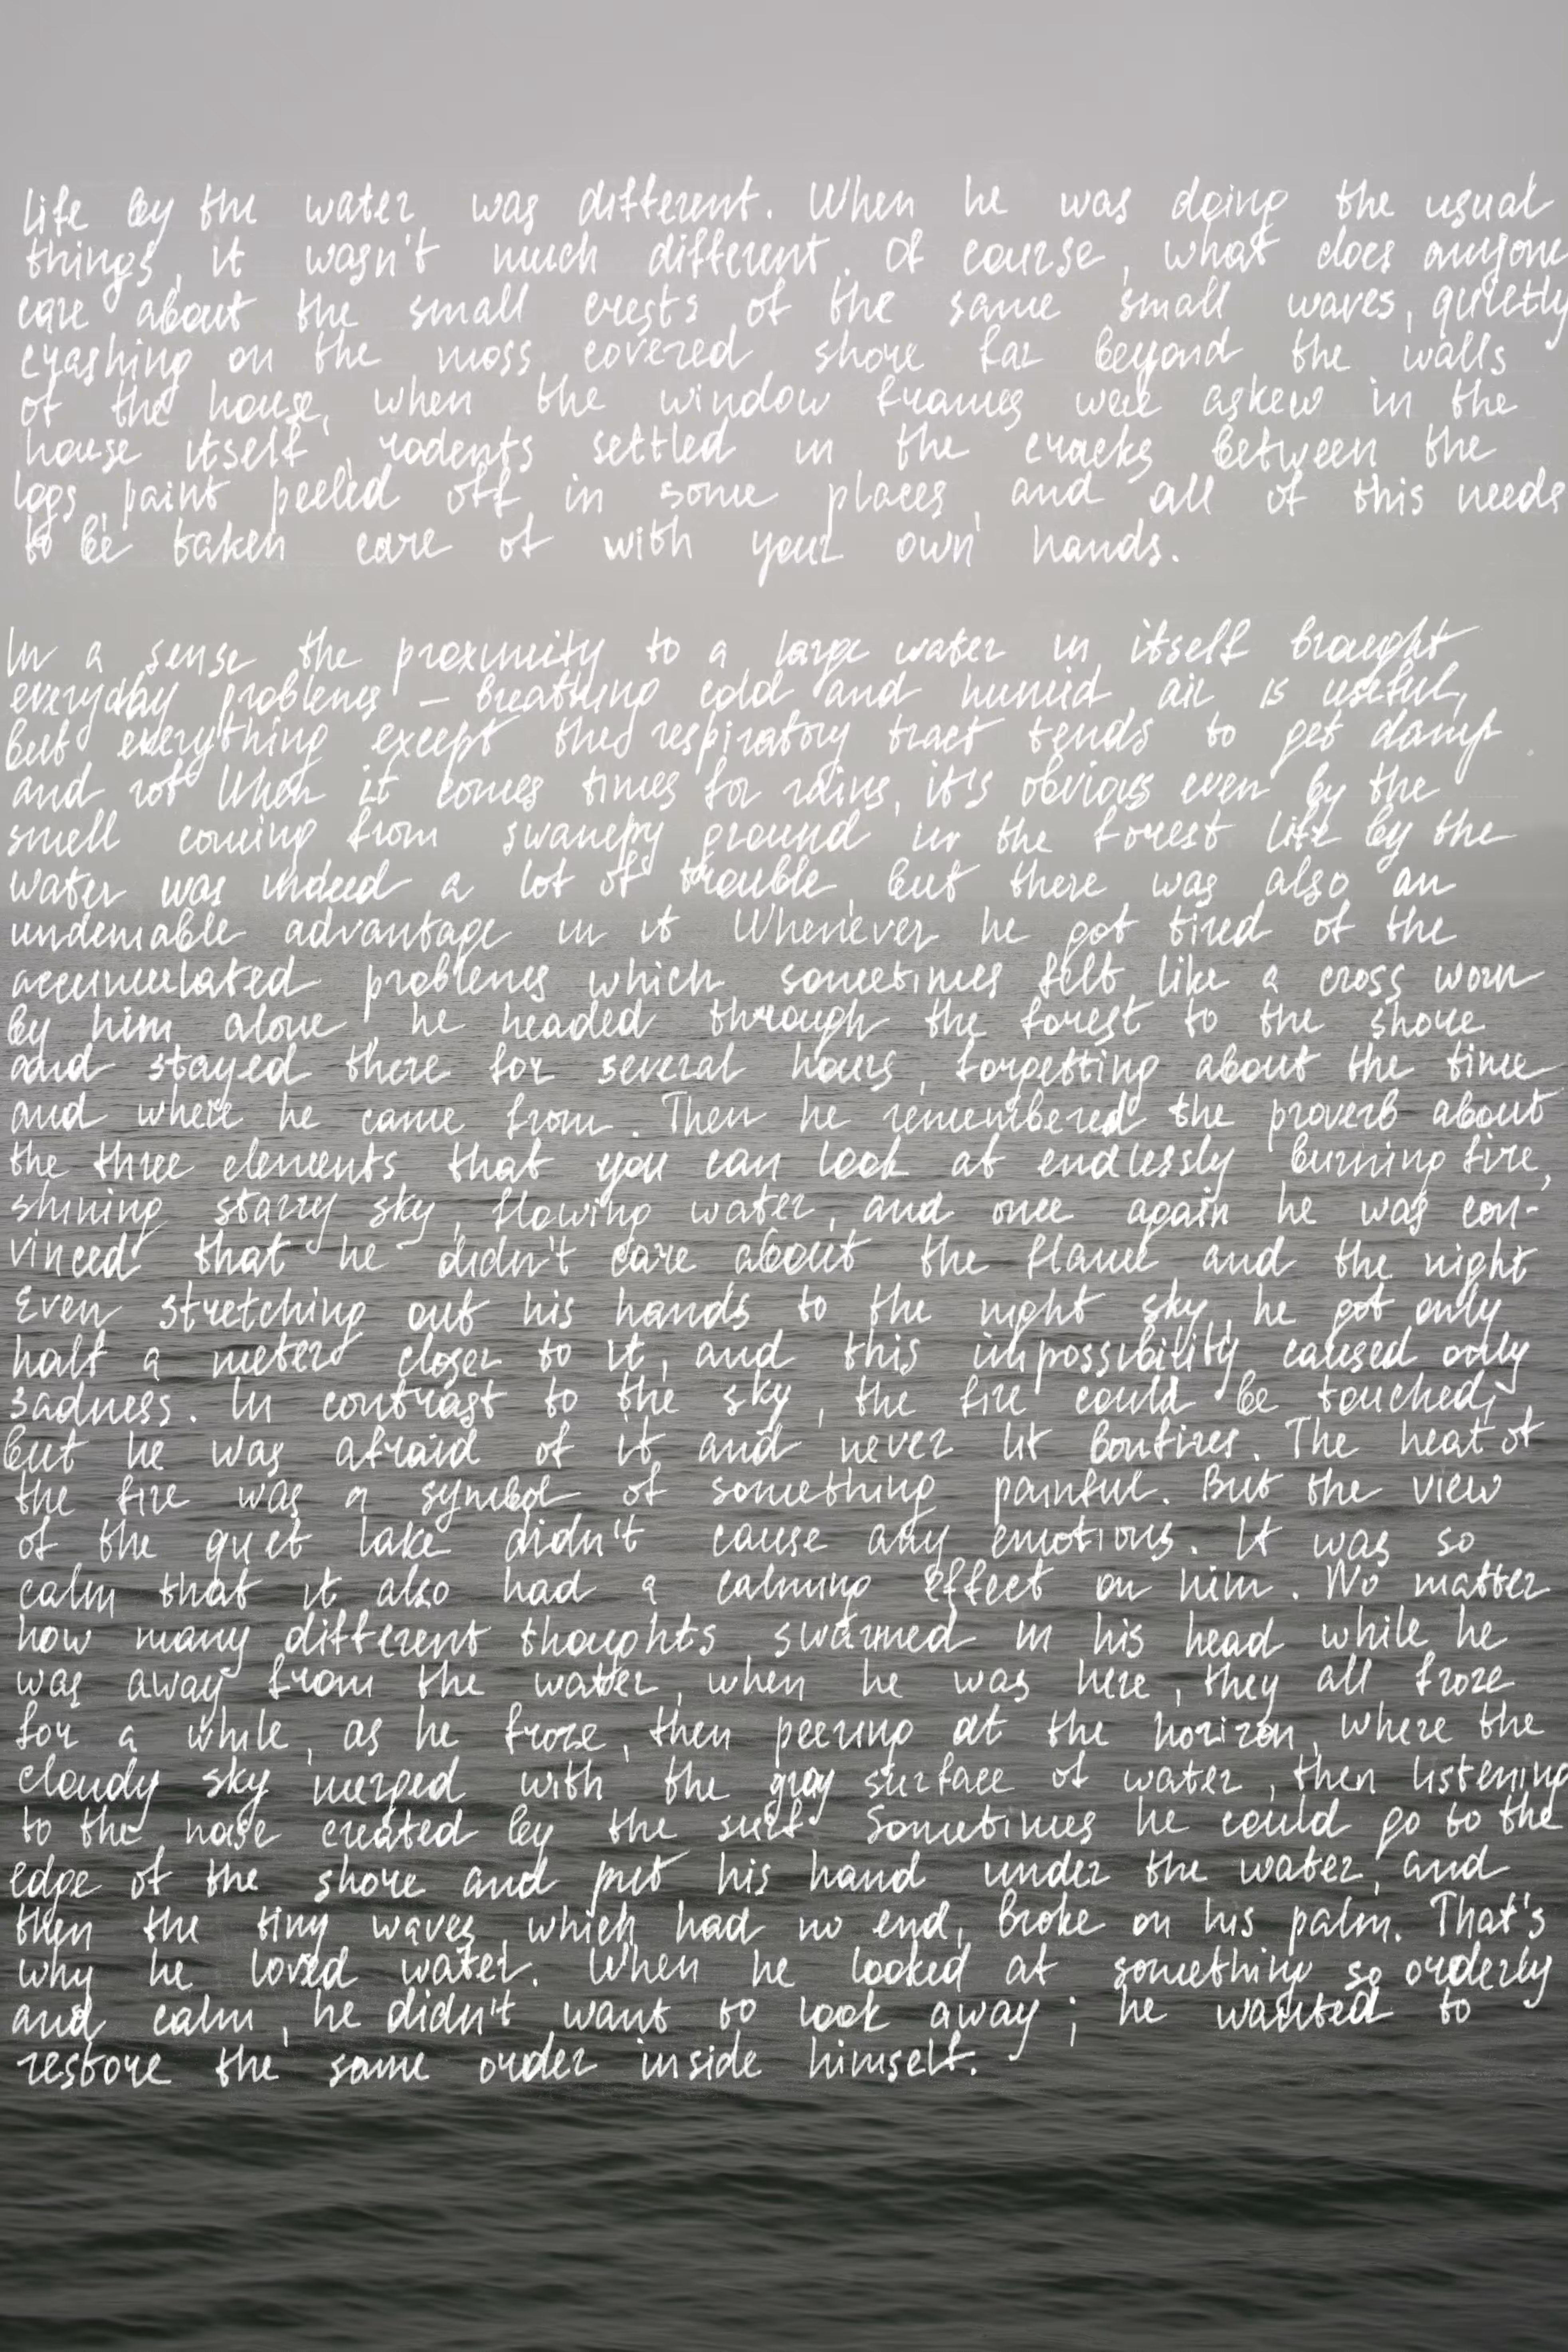 life by the water was different. When he was doing the usual
things, it wasn't much different. Of course, what does anyone
care about the small crests of the same small waves, quietly
crashing on the moss covered shore far beyond the walls
of the house, when the window frames were askew in the
house itself, rodents settled in the cracks between the
logs, paint peeled off in some places, and all of this needs
to be taken care of with your own hands.
In a sense the proximity to a large water in itself brought
everyday problems – breathing cold and humid air is useful,
but everything except the respiratory tract tends to get damp
and rot When it comes times for rains, it's obvious even by the
smell coming from swampy ground in the forest life by the
water was indeed a lot of trouble, but there was also an
undeniable advantage in it Whenever he got tired of the
accumulated problems which sometimes felt like a cross worn
by him alone, he headed through the forest to the shore
and stayed there for several hours, forgetting about the time
and where he came from. Then he remembered the proverb about
the three elements that you can look at endlessly burning fire,
shining starry sky, flowing water, and once again he was con-
vinced that he didn't care about the flame and the night
Even stretching out his hands to the night sky, he got only
half a meter closer to it, and this impossibility caused only
sadness. In contrast to the sky, the fire could be touched,
but he was afraid of it and never lit bonfires. The heat of
the fire was a symbol of something painful. But the view
of the quet lake didn't cause any emotions. It was so
calm that it also had a calming effect on him. No matter
how many different thoughts swarmed in his head while he
was away from the water, when he was here, they all froze
for a while, as he froze, then peering at the horizon, where the
cloudy sky merged with the gray surface of water, then listening
to the noise created by the surf Sometimes he could go to the
edge of the shore and put his hand under the water, and
then the tiny waves, which had no end, broke on his palm. That's
why he loved water. When he looked at something so orderly
and calm, he didn't want to look away; he wanted to
restore the same order inside himself.